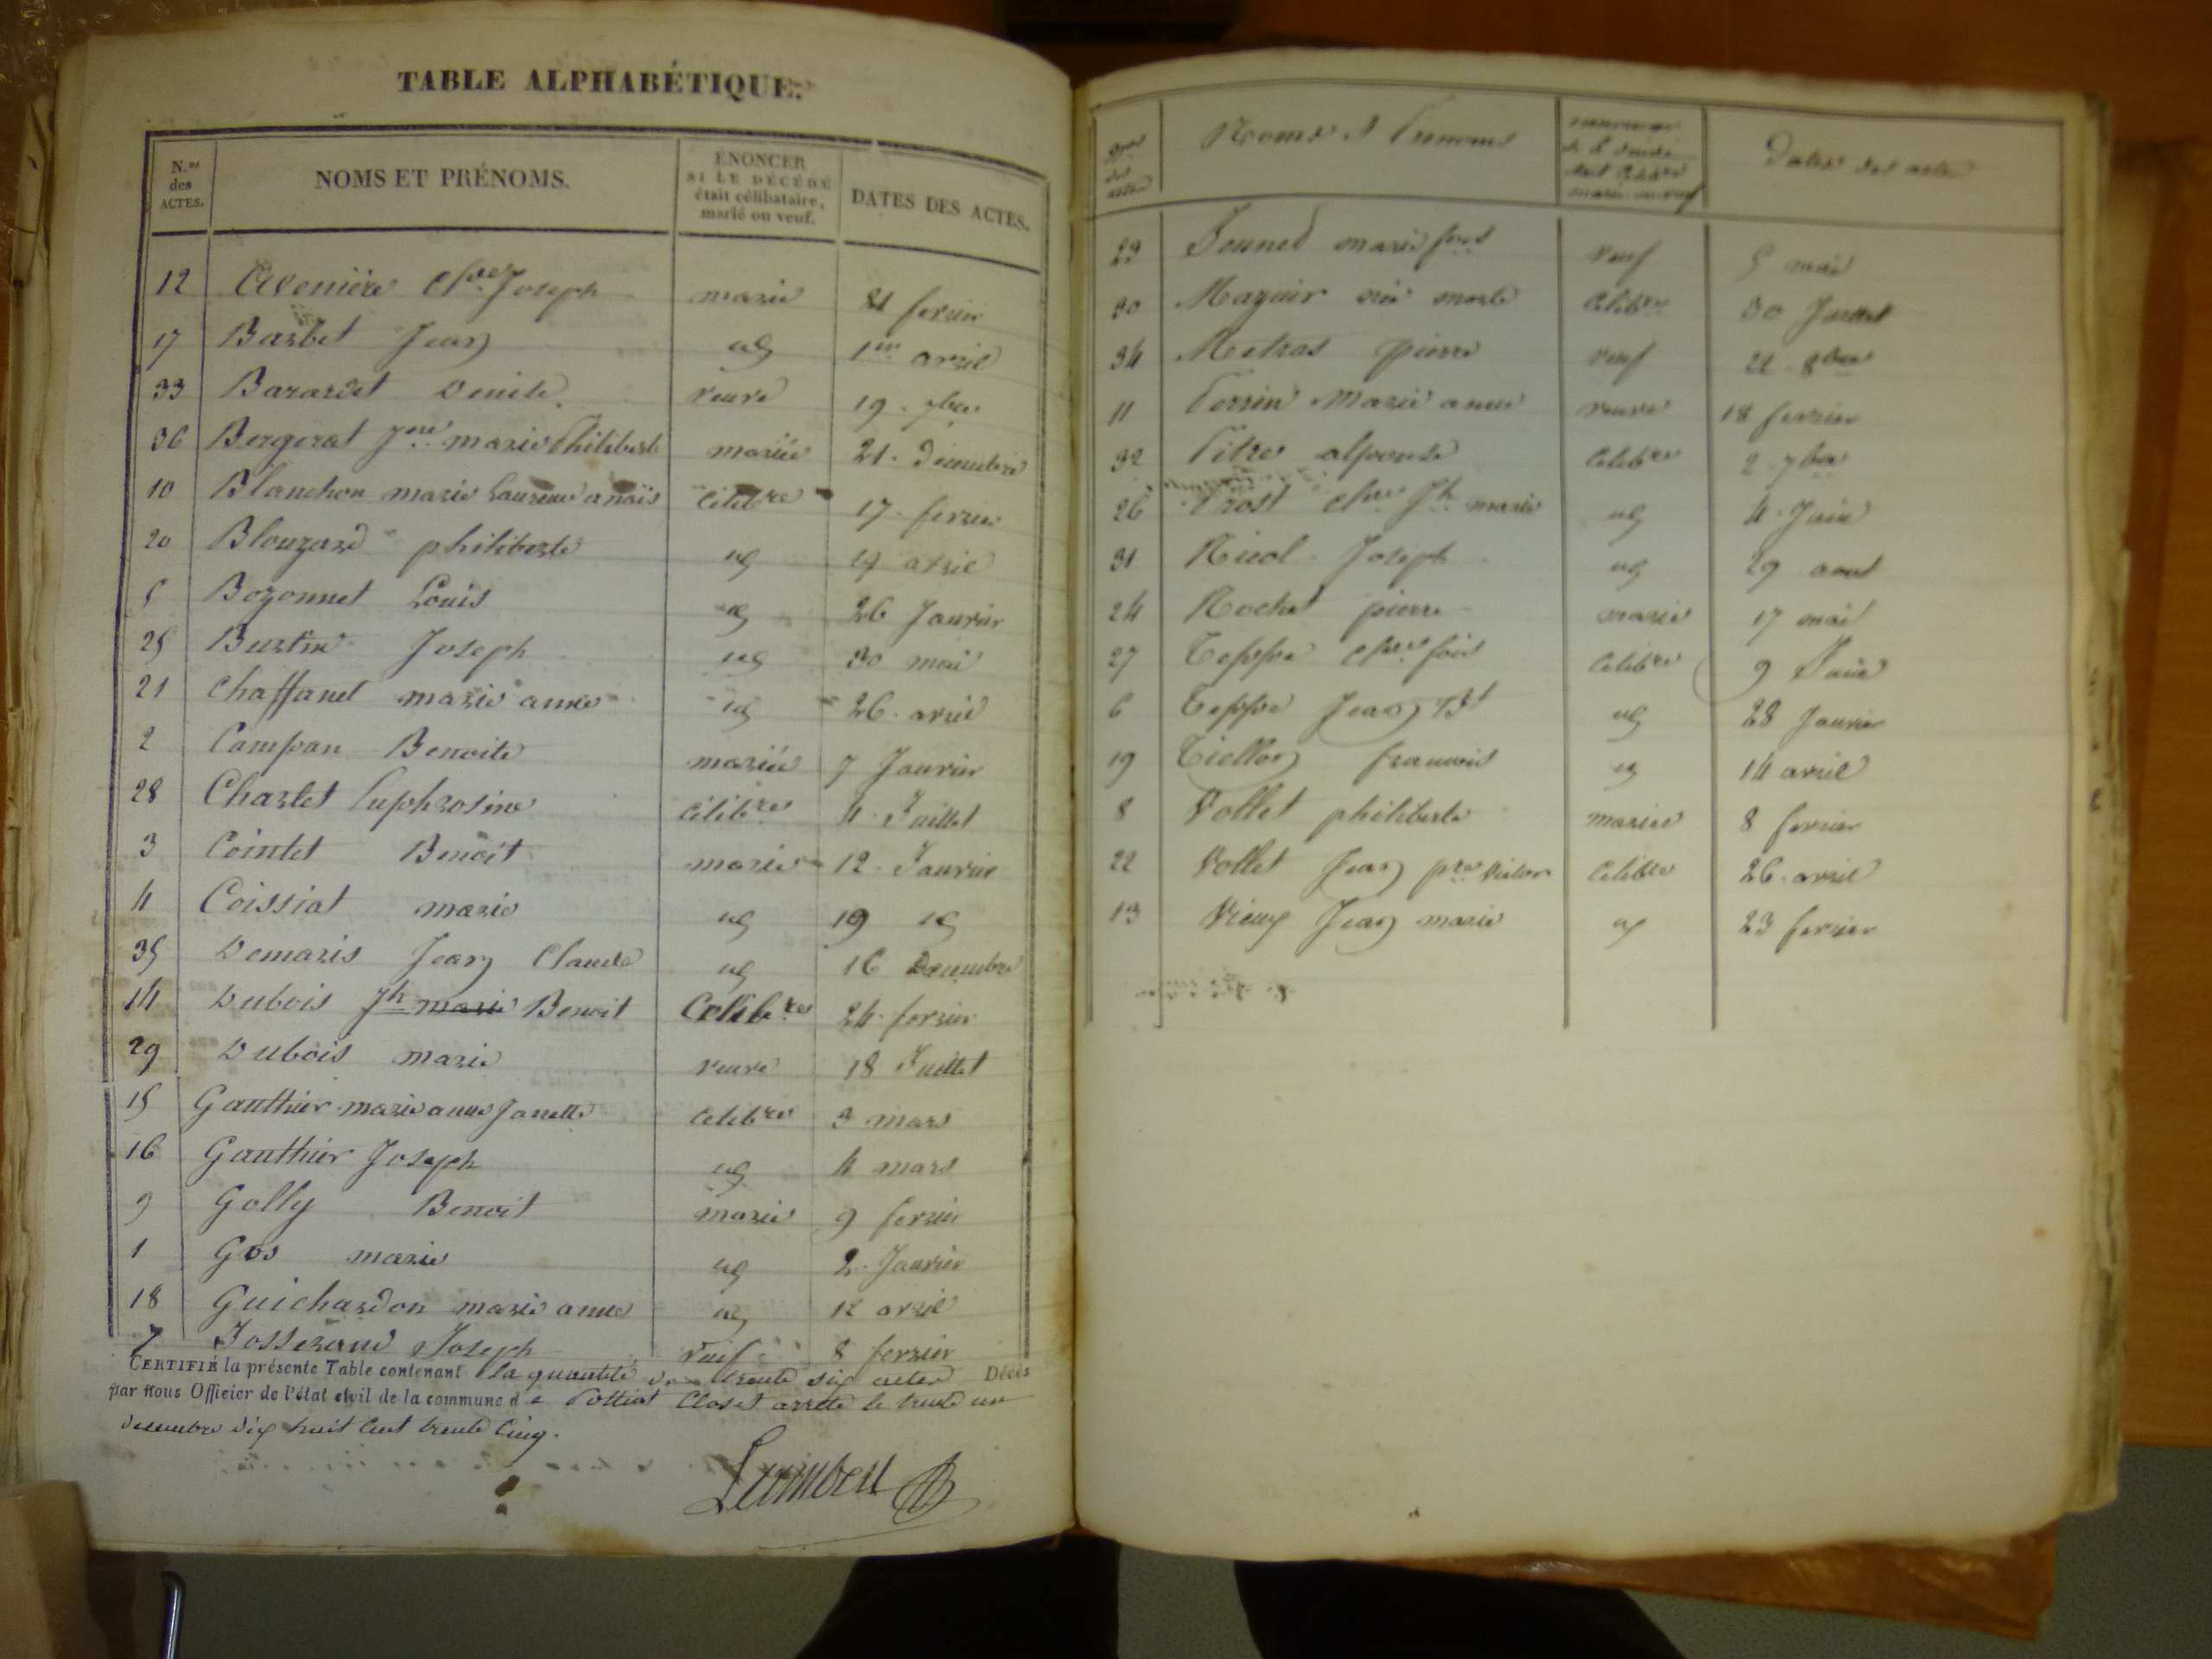 TABLE ALPHABÉTIQUE.
N.os des ACTES.
NOMS ET PRÉNOMS.
ÉNONCER SI LE DÉCÉDÉ était célibataire, marié ou veuf.
DATES DES ACTES.
12 Avenière Joseph marié 21 fevrier
17 Barbet Jean id 1er avril
33 Bavardet Denise veuve 19. 7bre
36 Bergerat marie Philiberte mariée 21. Decembre
10 Blanchon marie Laurence anaïs Célibre 17. fevrier
20 Blouzard philiberte id 19 avril
5 Bozonnet Louis id 26 Janvier
25 Burtin Joseph id 30 mai
21 Chaffanel marie anne id 26. avril
2 Campan Benoite mariée 7 Janvier
28 Charlet Euphrosine Célibre 4. Juillet
3 Cointet Benoit marié 12. Janvier
4 Coissiat marie id 19 id
35 Demaris Jean Claude id 16 Decembre
14 Dubois Jh marie Benoit Celibre 24. fevrier
29 Dubois marie veuve 18 Juillet
15 Gauthier marie anne Janette Celibre 3 mars
16 Gauthier Joseph id 4 mars
9 Golly Benoit marié 9 fevrier
1 Gos marie id 2. Janvier
18 Guichardon marie anne id 12 avril
7 Josserand Joseph veuf 8 fevrier
CERTIFIÉ la présente Table contenant la quantité de trente six actes Décès
par nous Officier de l'état civil de la commune de Polliat Clos et arreté le trente un
decembre dix huit cent trente cinq.
Noms et Prenoms
Dates des actes
23 marie veuf 5 mai
30 né mort Celibre 30 Juillet
34 Metras pierre veuf 22 8bre
11 Perrin Marie anne veuve 18 fevrier
32 Pitre alponse Celibre 2. 7bre
26 Prost Jh marie id 4. Juin
31 Nicol Joseph id 29 aout
24 Rochet pierre marié 17 mai
27 Teppe Celibre 9 Juin
6 Teppe Jean Bt id 28 Janvier
19 francois id 14 avril
8 Vollet philiberte mariée 8 fevrier
22 Vollet Jean pre Victor Celibre 26. avril
13 Vieux Jean marie id 23 fevrier